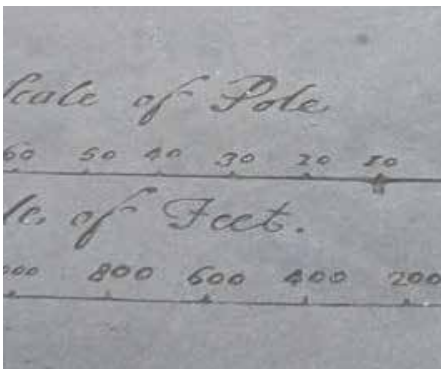 Scale of Pole
60 50 40 30 20 10
le of Feet.
000 800 600 400 200